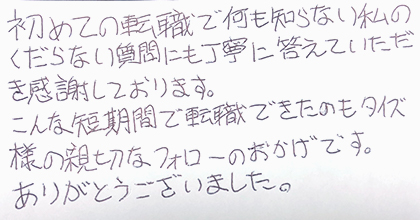 初めての転職で何も知らない私の
くだらない質問にも丁寧に答えていただ
き感謝しております。
こんな短期間で転職できたのもタイズ
様の親切なフォローのおかげです。
ありがとうございました。